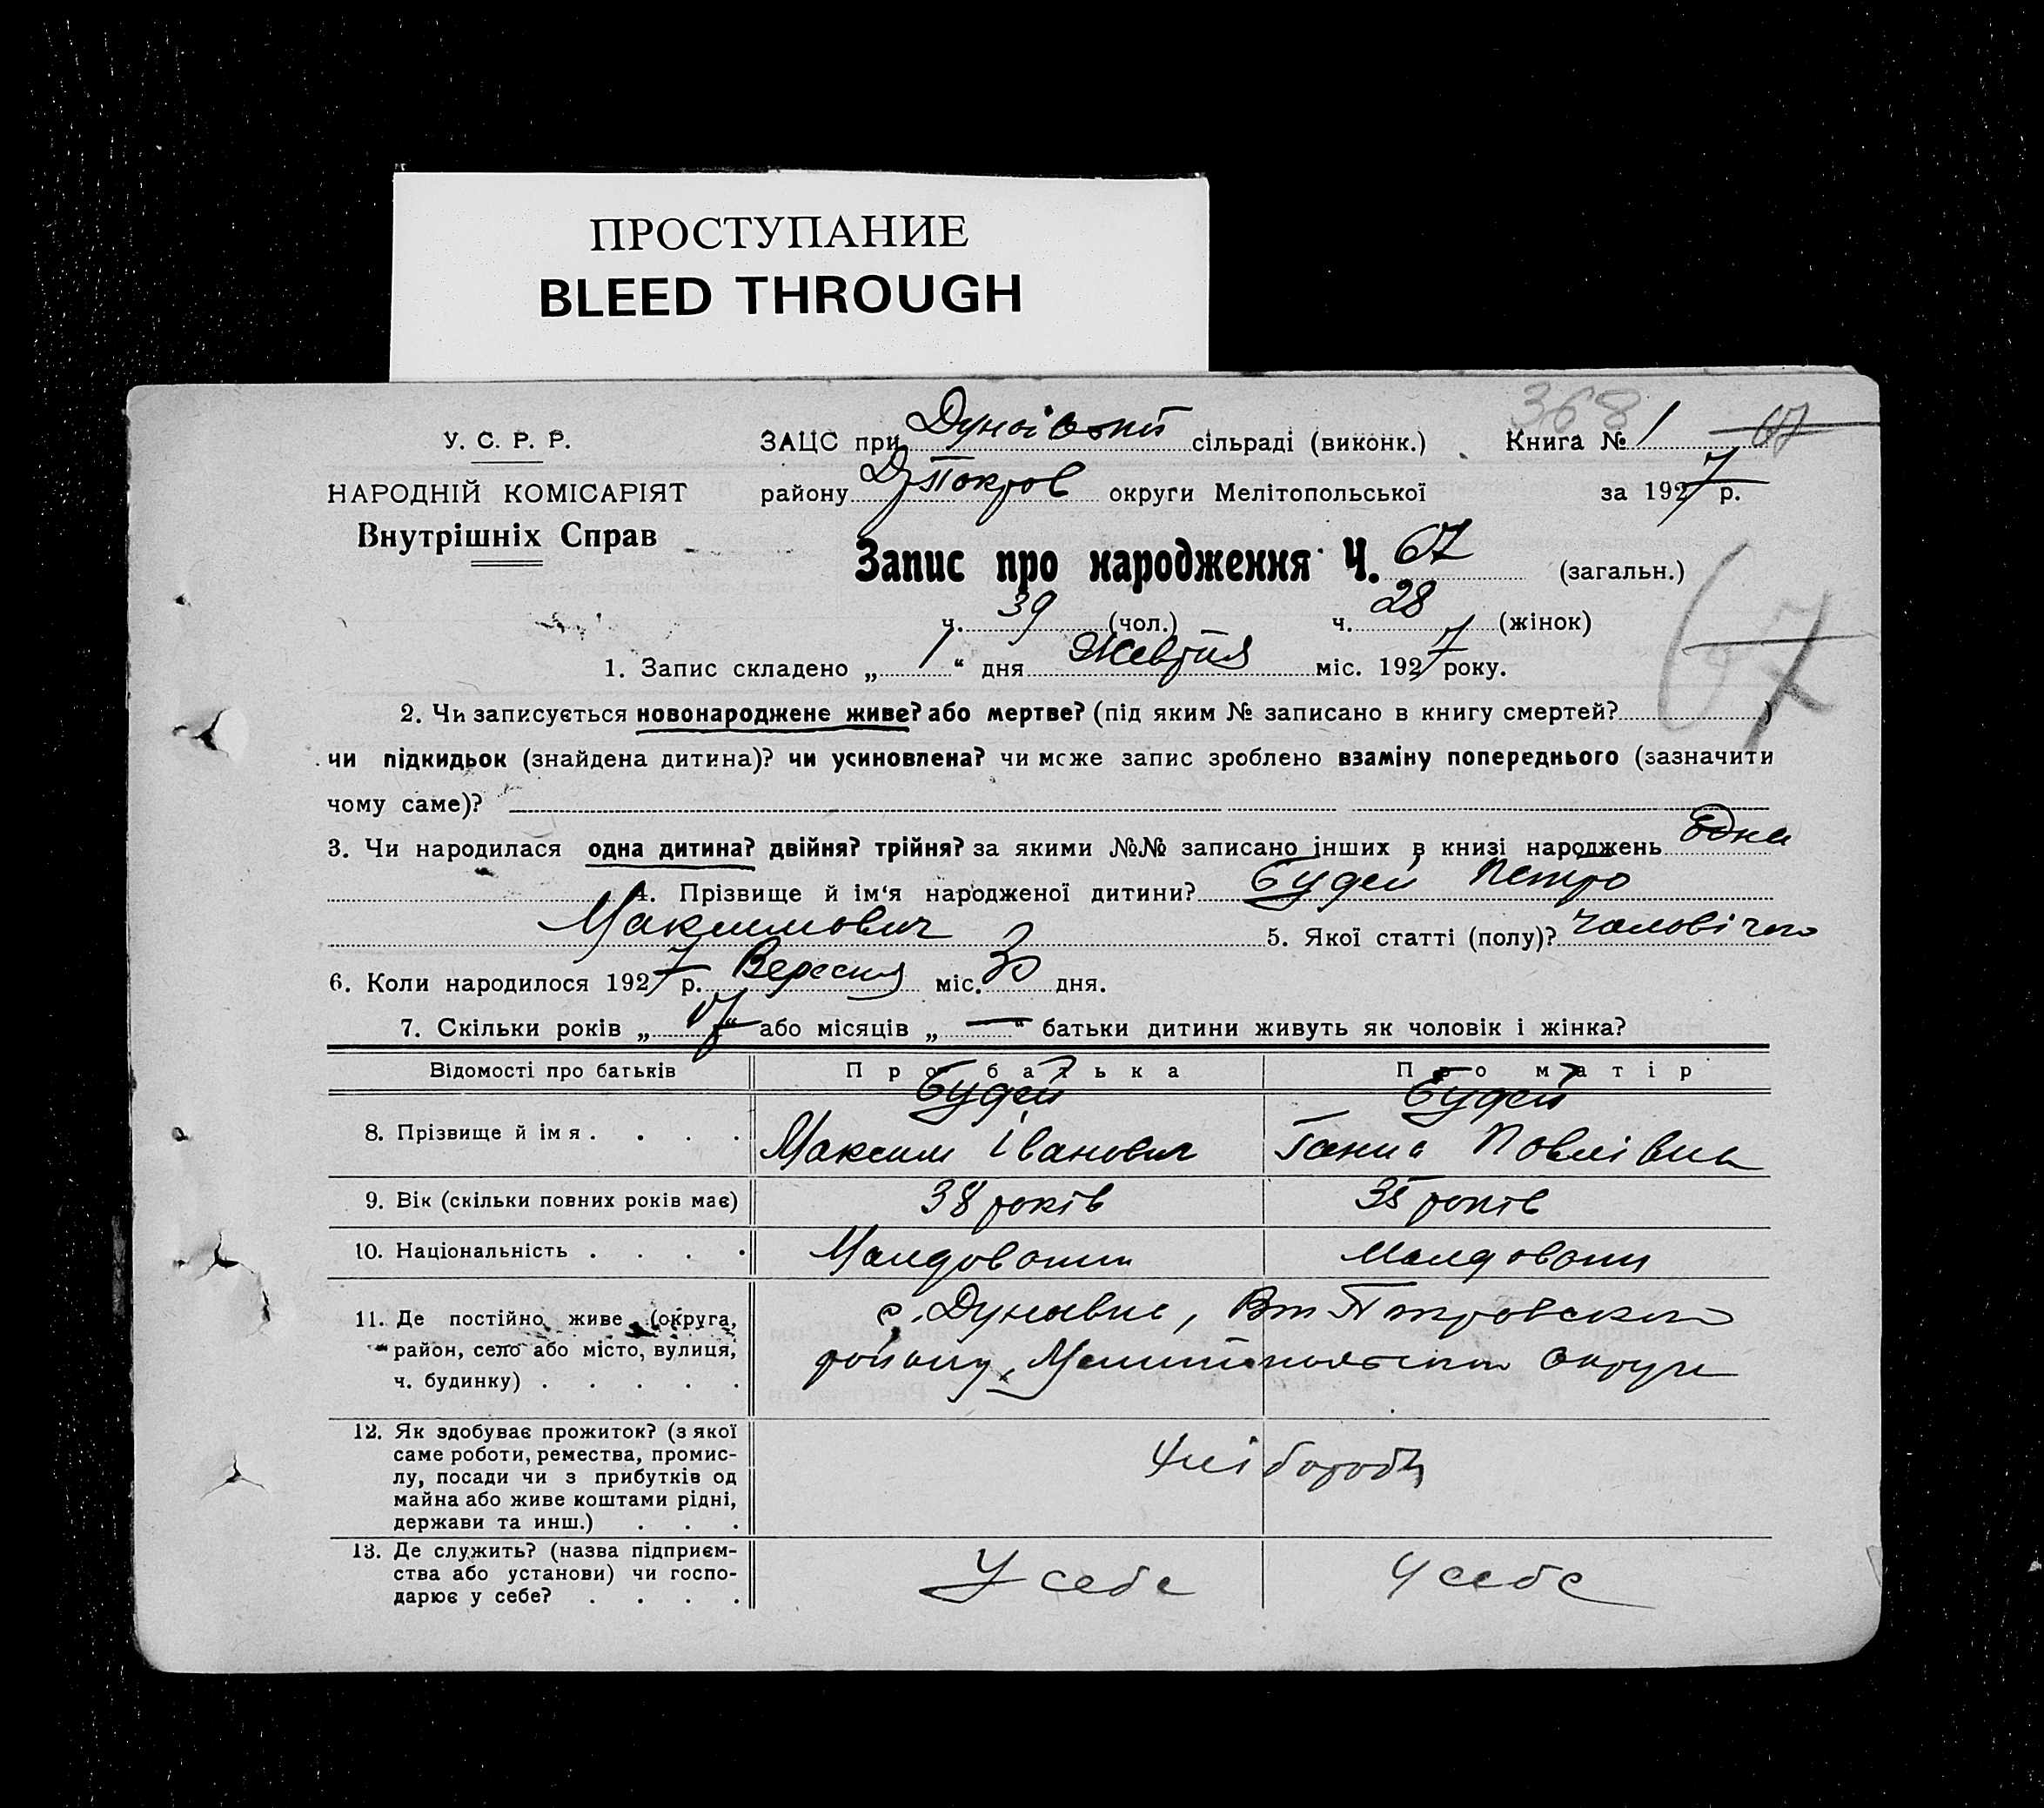 ПРОСТУПАНИЕ
BLEED THROUGH
368
У. С. Р. Р. ЗАЦС при сільраді (виконк.) Книга № 1 67
НАРОДНІЙ КОМІСАРІЯТ району округи Мелітопольської за 1927 р.
Внутрішніх Справ
Запис про народження Ч. 67 (загальн.)
67
ч. 39 (чол.) ч. 28 (жінок)
1. Запис складено „ 1 “ дня Жевтня міс. 1927 року.
2. Чи записується новонароджене живе? або мертве? (під яким № записано в книгу смертей? )
чи підкидьок (знайдена дитина)? чи усиновлена? чи може запис зроблено взаміну попереднього (зазначити
чому саме)?
3. Чи народилася одна дитина? двійня? трійня? за якими №№ записано інших в книзі народжень одна
4. Прізвище й ім‘я народженої дитини? Будей Петро
Максимович 5. Якої статті (полу)? чоловічого
6. Коли народилося 1927 р. Вересня міс. 30 дня.
7. Скільки років „ 17 “ або місяців „ — “ батьки дитини живуть як чоловік і жінка?
Відомості про батьків Про батька Про матір
Будей Будей
8. Прізвище й імя . . . . Максим Іванович Ганна Павлівна
9. Вік (скільки повних років має) 38 років 35 років
10. Національність . . . .
11. Де постійно живе (округа,
район, село або місто, вулиця,
ч. будинку) . . . . .
району, округи
12. Як здобуває прожиток? (з якої
саме роботи, ремества, промис-
лу, посади чи з прибутків од
майна або живе коштами рідні,
держави та инш.) . . .
Хлібороби
13. Де служить? (назва підприєм-
ства або установи) чи госпо-
дарює у себе? . . . .
У себе У себе